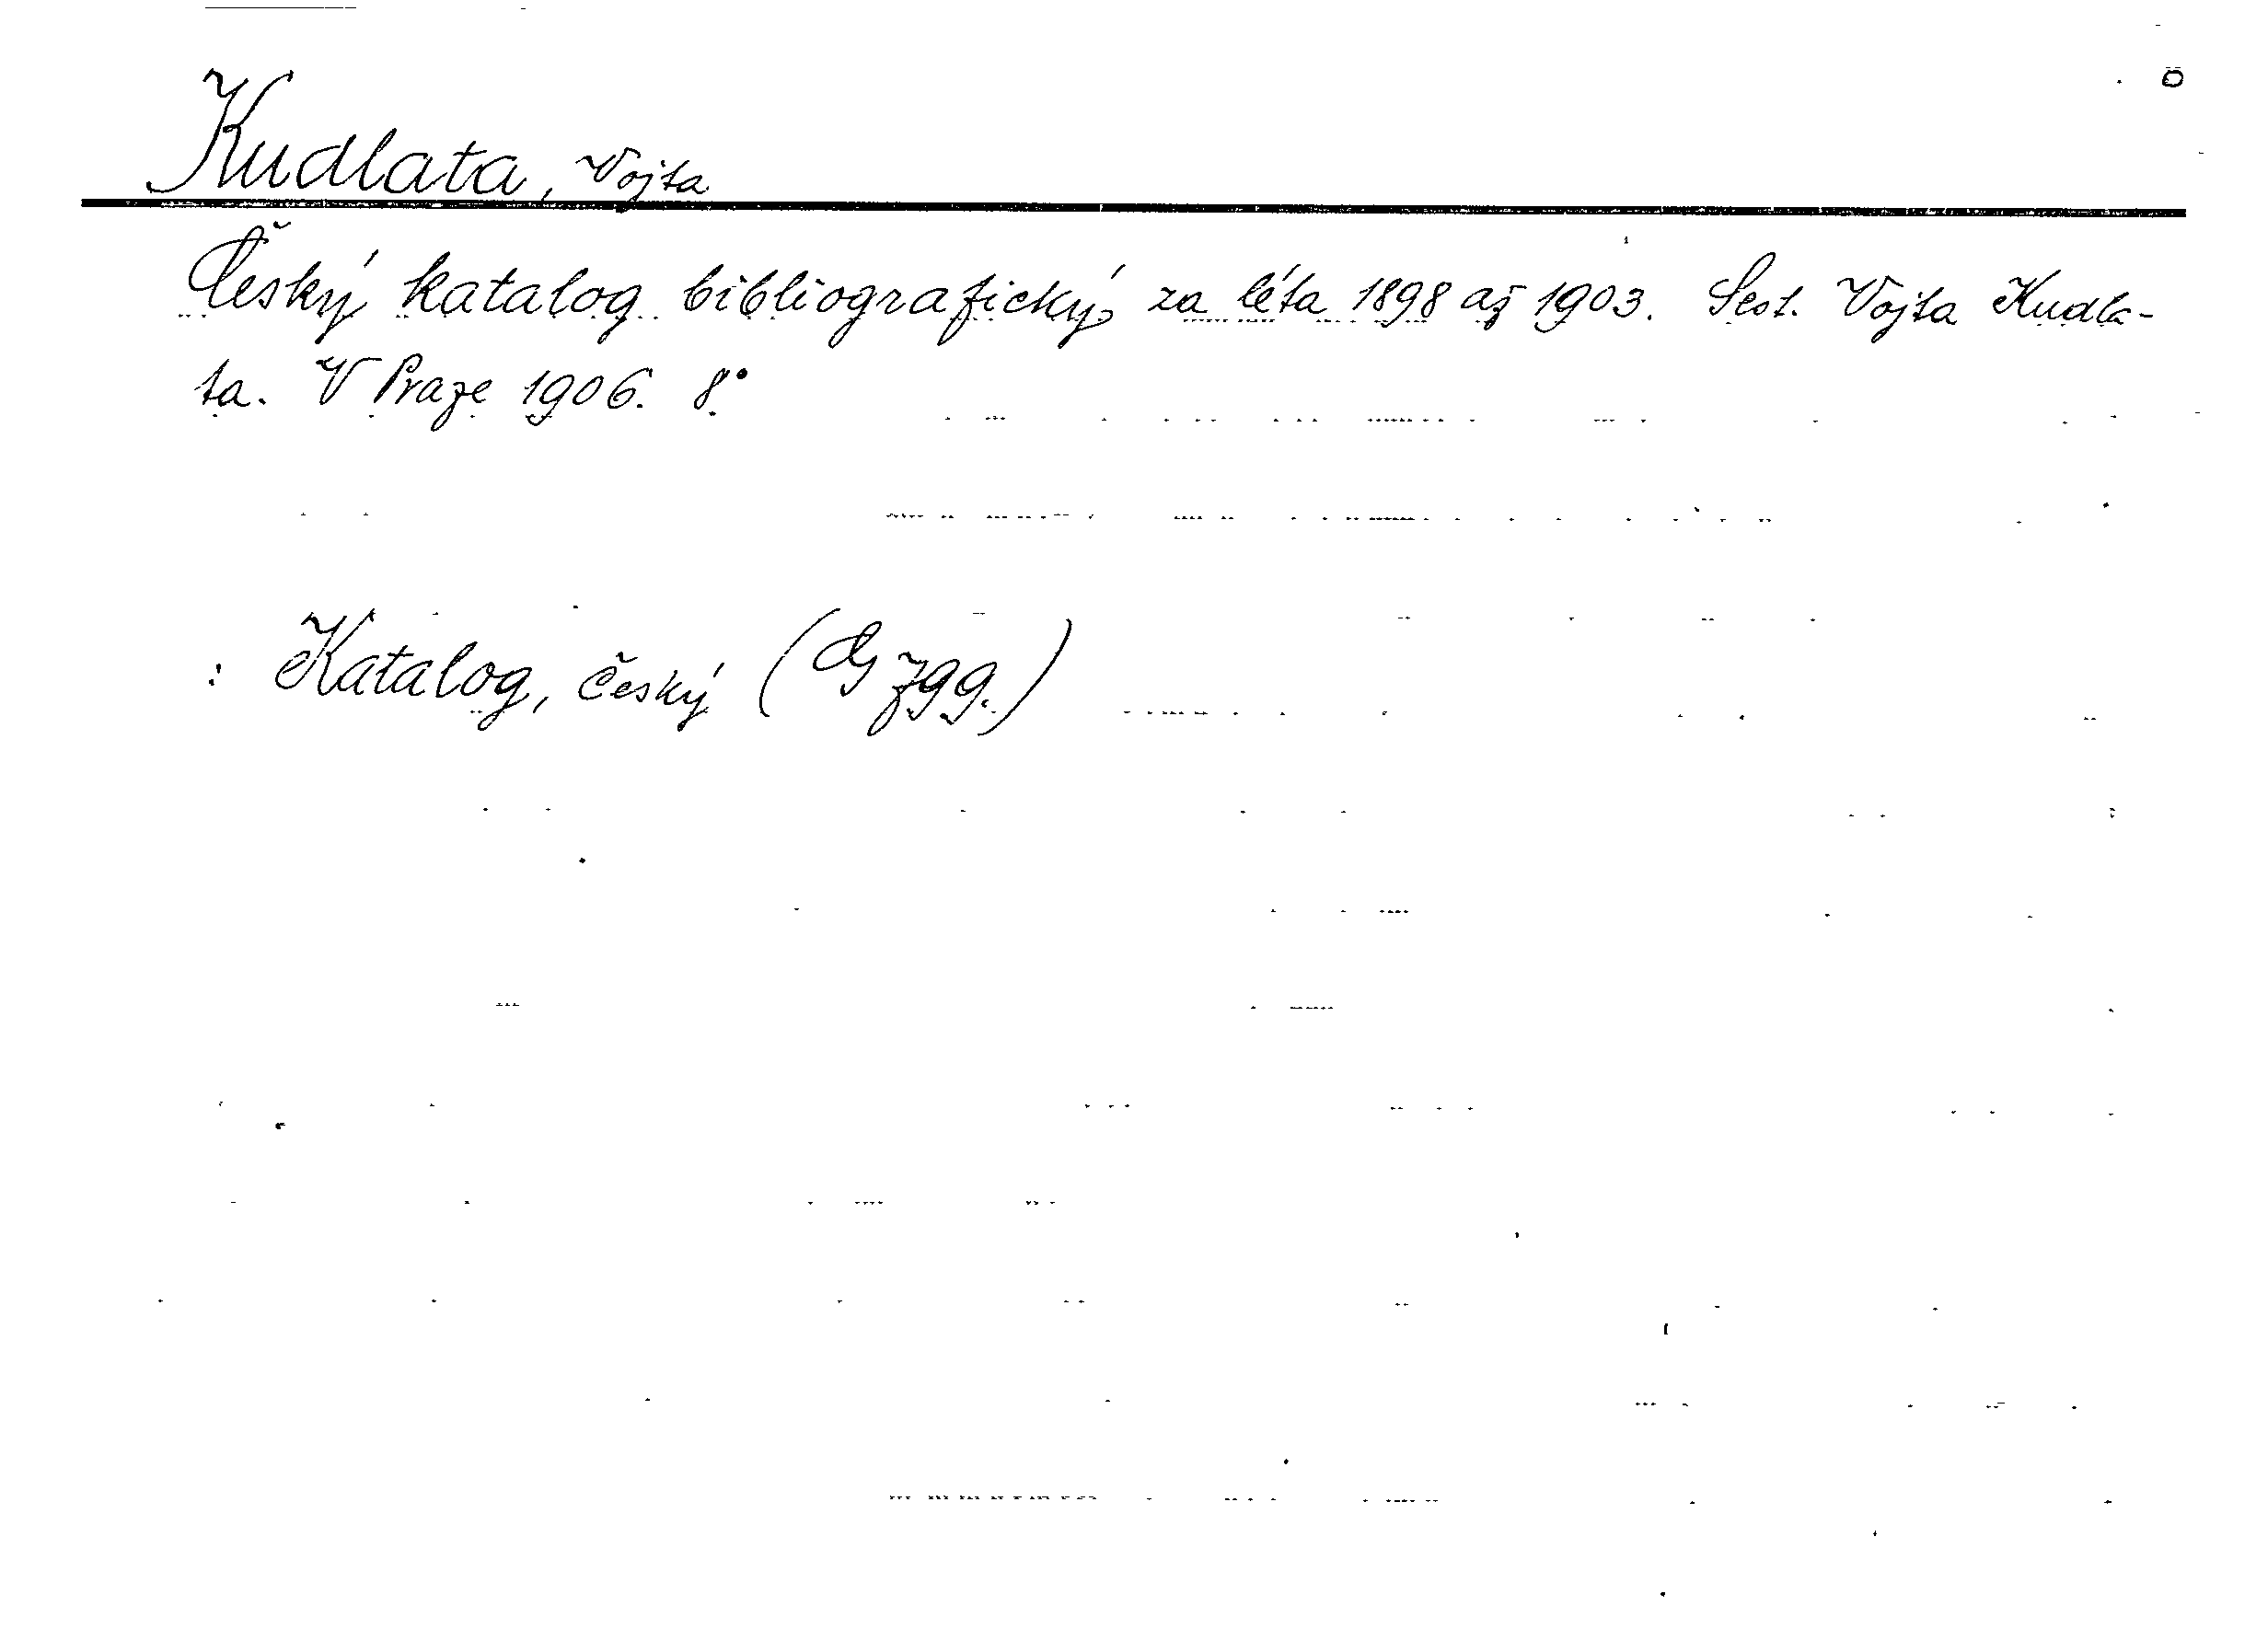 Kudlata, Vojta
Český katalog bibliografický za léta 1898 až 1903. Sest. Vojta Kudla-
ta. V Praze 1906. 8°
: Katalog, český (799.)